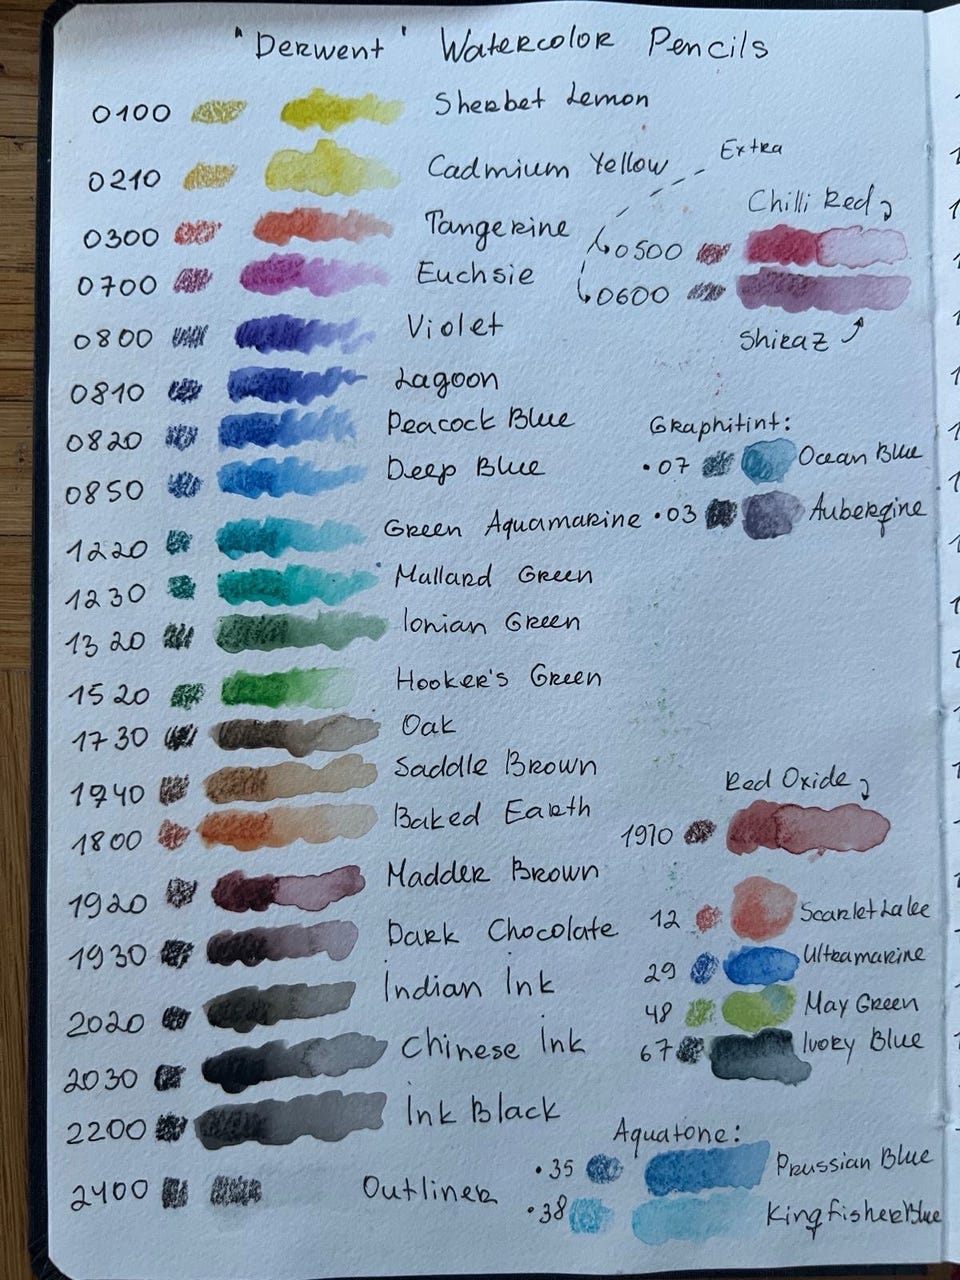 "Derwent" Watercolor Pencils
0100 Sherbet Lemon
0210 Cadmium Yellow
0300 Tangerine
0700 Euchsie
0800 Violet
0810 Lagoon
0820 Peacock Blue
0850 Deep Blue
1220 Green Aquamarine
1230 Mallard Green
1320 Ionian Green
1520 Hooker's Green
1730 Oak
1940 Saddle Brown
1800 Baked Earth
1920 Madder Brown
1930 Dark Chocolate
2020 Indian Ink
2030 Chinese Ink
2200 Ink Black
2400 Outliner
Extra
Chilli Red
0500
0600
Shiraz
Graphitint:
•07 Ocean Blue
•03 Aubergine
Red Oxide
1910
12 Scarlet Lake
29 Ultramarine
48 May Green
67 Ivory Blue
Aquatone:
•35 Prussian Blue
•38 Kingfisher Blue